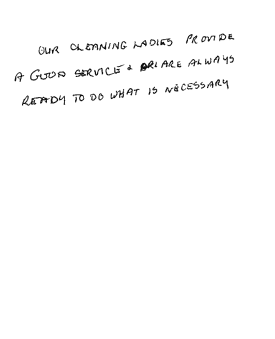 OUR CLEANING LADIES PROVIDE
A GOOD SERVICE & ARE ALWAYS
READY TO DO WHAT IS NECESSARY